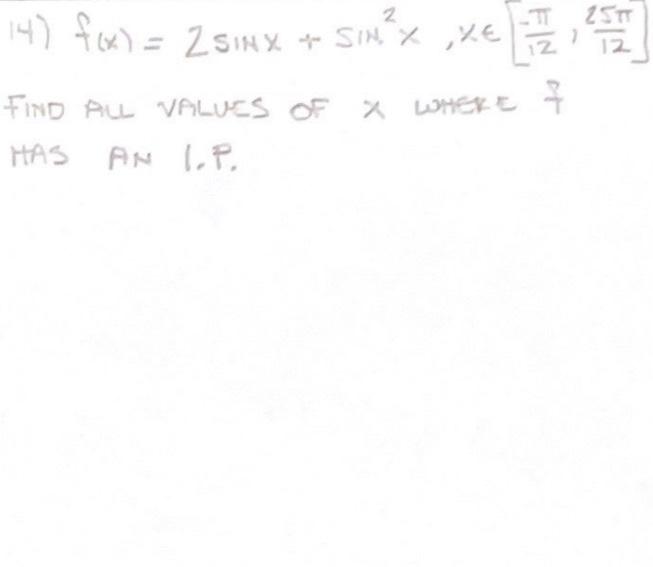 14) f(x) = 2 SIN X + SIN² X , X ∈ [-π/12 , 25π/12]
FIND ALL VALUES OF X WHERE f
HAS AN I.P.